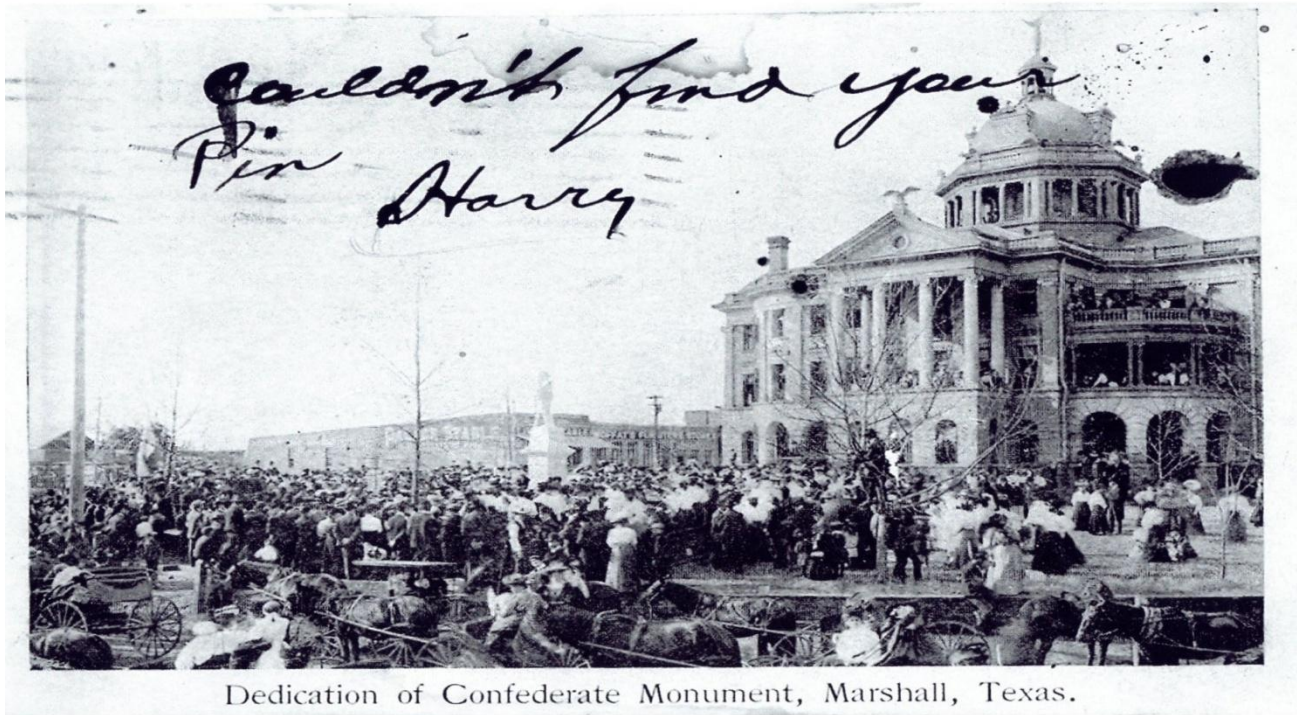 Couldn't find your
Pin
Harry
Dedication of Confederate Monument, Marshall, Texas.